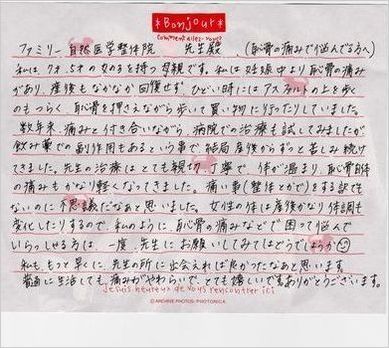 *Bonjour*
comment allez-vous?
ファミリー自然医学整体院 先生殿 (恥骨の痛みで悩んでる方へ)
私は、7才、5才の女の子を持つ母親です。私は妊娠中より恥骨の痛み
があり、産後もなかなか回復せず、ひどい時にはアスファルトの上を歩く
のもつらく、恥骨を押さえながら歩いて買い物に行ったりしていました。
数年来、痛みと付き合いながら、病院での治療も試してみましたが
飲み薬での副作用もあるという事で結局産後からずっと苦しみ続け
てきました。先生の治療はとても親切、丁寧で、体が温まり、恥骨自体
の痛みもかなり軽くなってきました。痛い事(整体とかで)をする訳でも
ないのに不思議だなぁと思いました。女性の体は産後かなり体調も
変化したりするので、私のように、恥骨の痛みなどで困って悩んで
いらっしゃる方は、一度、先生にお願いしてみてはどうでしょうか
私も、もっと早くに、先生の所に出会えれば良かったなぁと思います。
普通に生活しても、痛みがやわらいで、とても嬉しいです。ありがとうございます。
Je suis heureux de vous rencontrer ici
© ARCHIVE PHOTOS / PHOTONICA